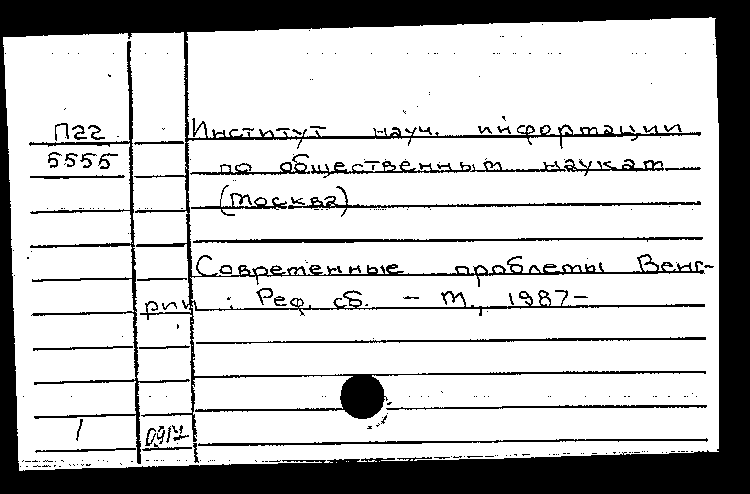 П22 Институт науч. информации
5555 по общественным наукам
(Москва)
Современные проблемы Венг-
рии : Реф. сб. – М., 1987–
1